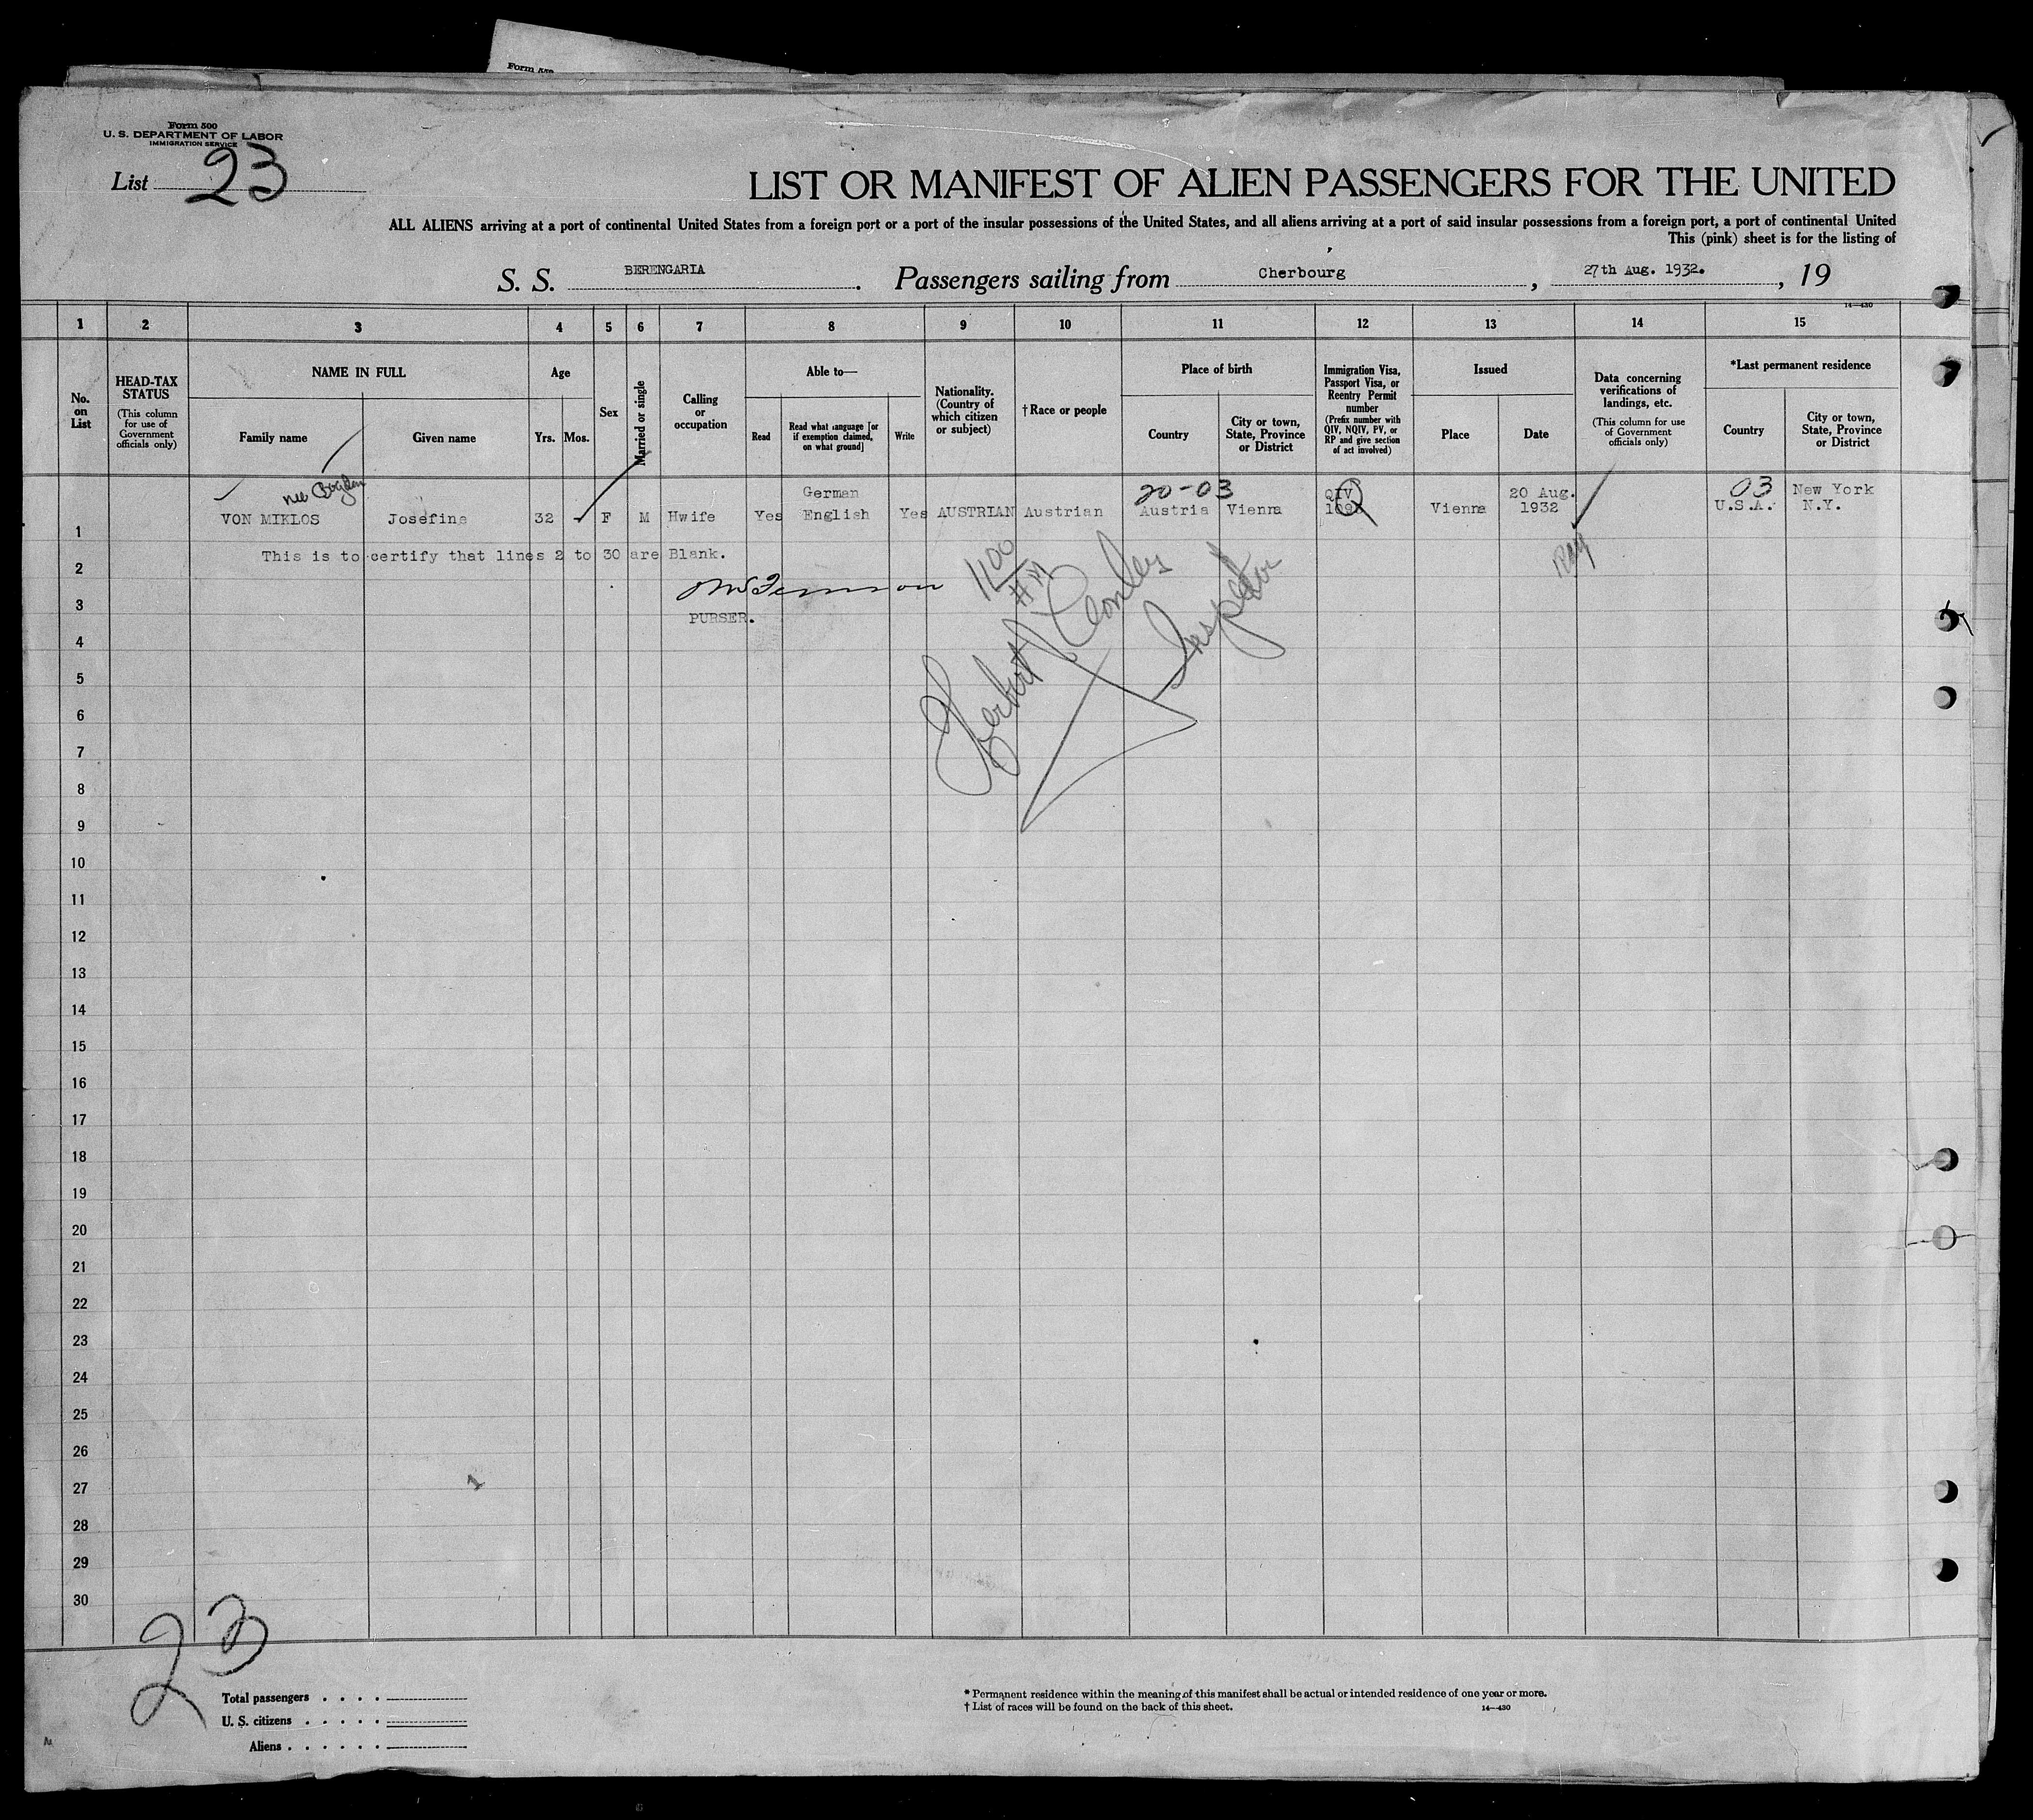 Form 500
U. S. DEPARTMENT OF LABOR
IMMIGRATION SERVICE
List 23
LIST OR MANIFEST OF ALIEN PASSENGERS FOR THE UNITED
ALL ALIENS arriving at a port of continental United States from a foreign port or a port of the insular possessions of the United States, and all aliens arriving at a port of said insular possessions from a foreign port, a port of continental United
This (pink) sheet is for the listing of
S. S. BERENGARIA. Passengers sailing from Cherbourg, 27th Aug. 1932., 19
14—430
1 2 3 4 5 6 7 8 9 10 11 12 13 14 15
No. on List
HEAD-TAX STATUS
(This column for use of Government officials only)
NAME IN FULL
Family name
Given name
Age
Yrs.
Mos.
Sex
Married or single
Calling or occupation
Able to—
Read
Read what language [or if exemption claimed, on what ground]
Write
Nationality. (Country of which citizen or subject)
†Race or people
Place of birth
Country
City or town, State, Province or District
Immigration Visa, Passport Visa, or Reentry Permit number
(Prefix number with QIV, NQIV, PV, or RP and give section of act involved)
Issued
Place
Date
Data concerning verifications of landings, etc.
(This column for use of Government officials only)
*Last permanent residence
Country
City or town, State, Province or District
nee
German 20-03 QIV 20 Aug. 03 New York
1 VON MIKLOS Josefine 32 F M Hwife Yes English Yes AUSTRIAN Austrian Austria Vienna Vienna 1932 U.S.A. N.Y.
This is to certify that lines 2 to 30 are Blank.
PURSER.
1100
Herbert Conley
Inspector
2
3
4
5
6
7
8
9
10
11
12
13
14
15
16
17
18
19
20
21
22
23
24
25
26
27
28
29
30
23
Total passengers . . . .
U. S. citizens . . . . .
Aliens . . . . . .
* Permanent residence within the meaning of this manifest shall be actual or intended residence of one year or more.
† List of races will be found on the back of this sheet.
14—430